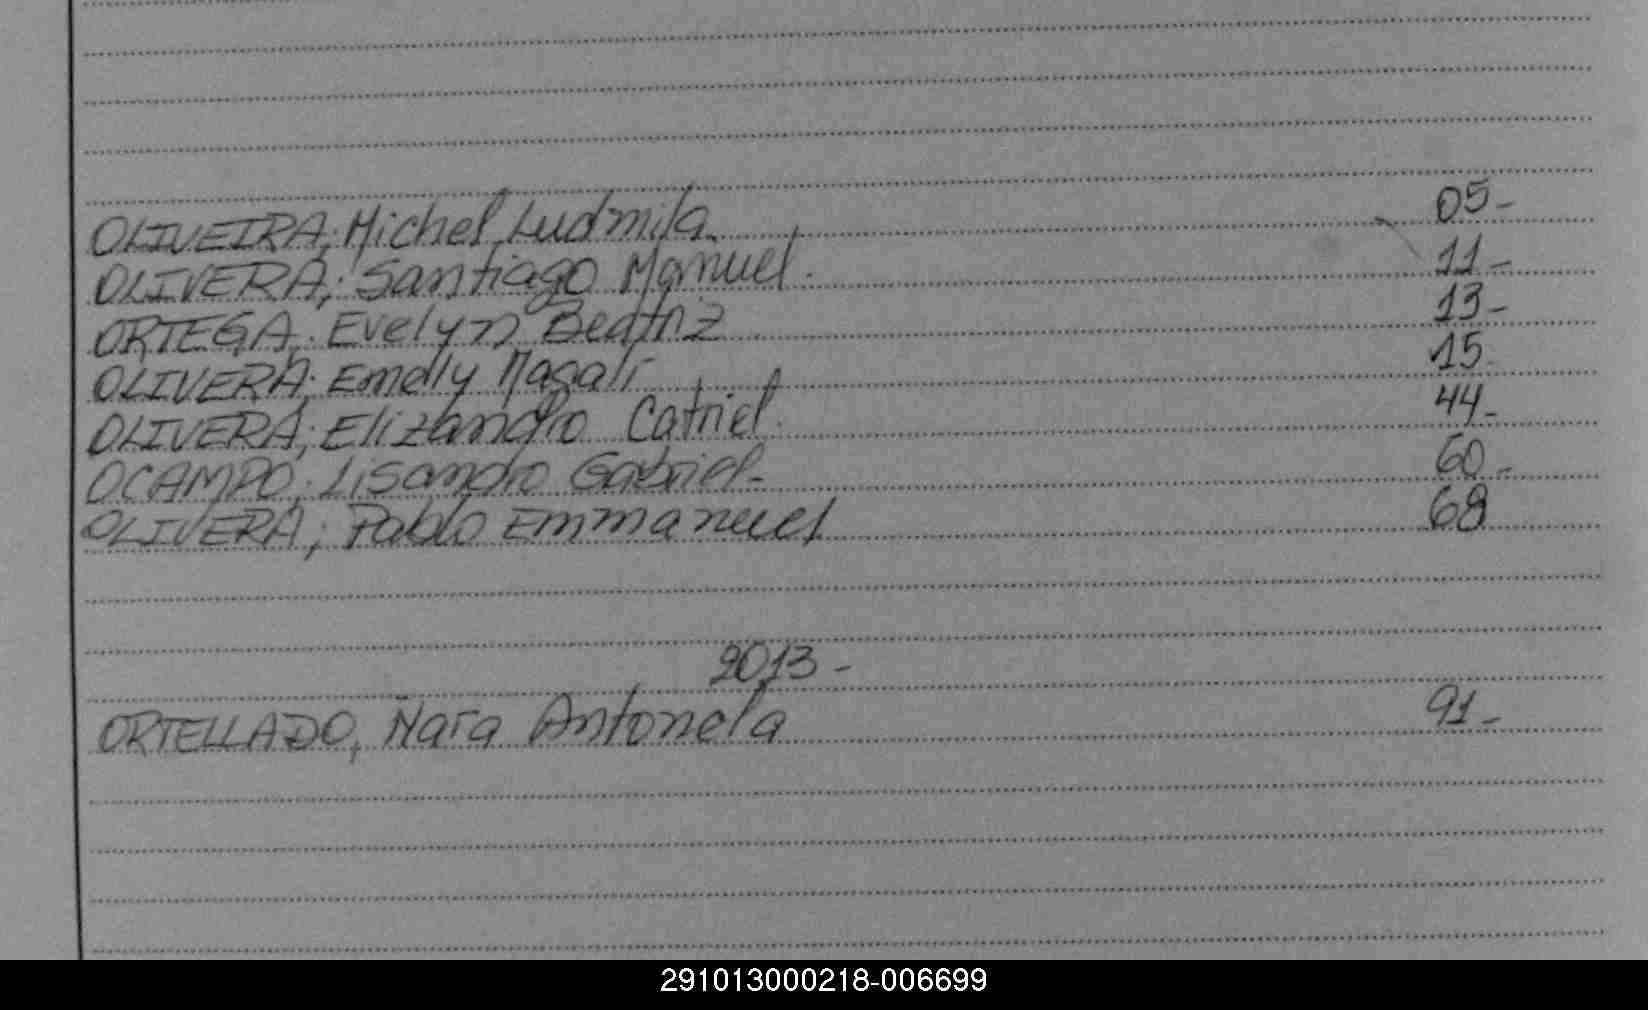 OLIVEIRA; Michel Ludmila. 05-
OLIVERA; Santiago Manuel. 11-
ORTEGA; Evelyn Beatriz 13-
OLIVERA; Emelly Magali 15-
OLIVERA; Elizandro Catriel. 44-
OCAMPO; Lisandro Gabriel- 60-
OLIVERA; Pablo Emmanuel 68
2013-
ORTELLADO, Nara Antonela 91-
291013000218-006699